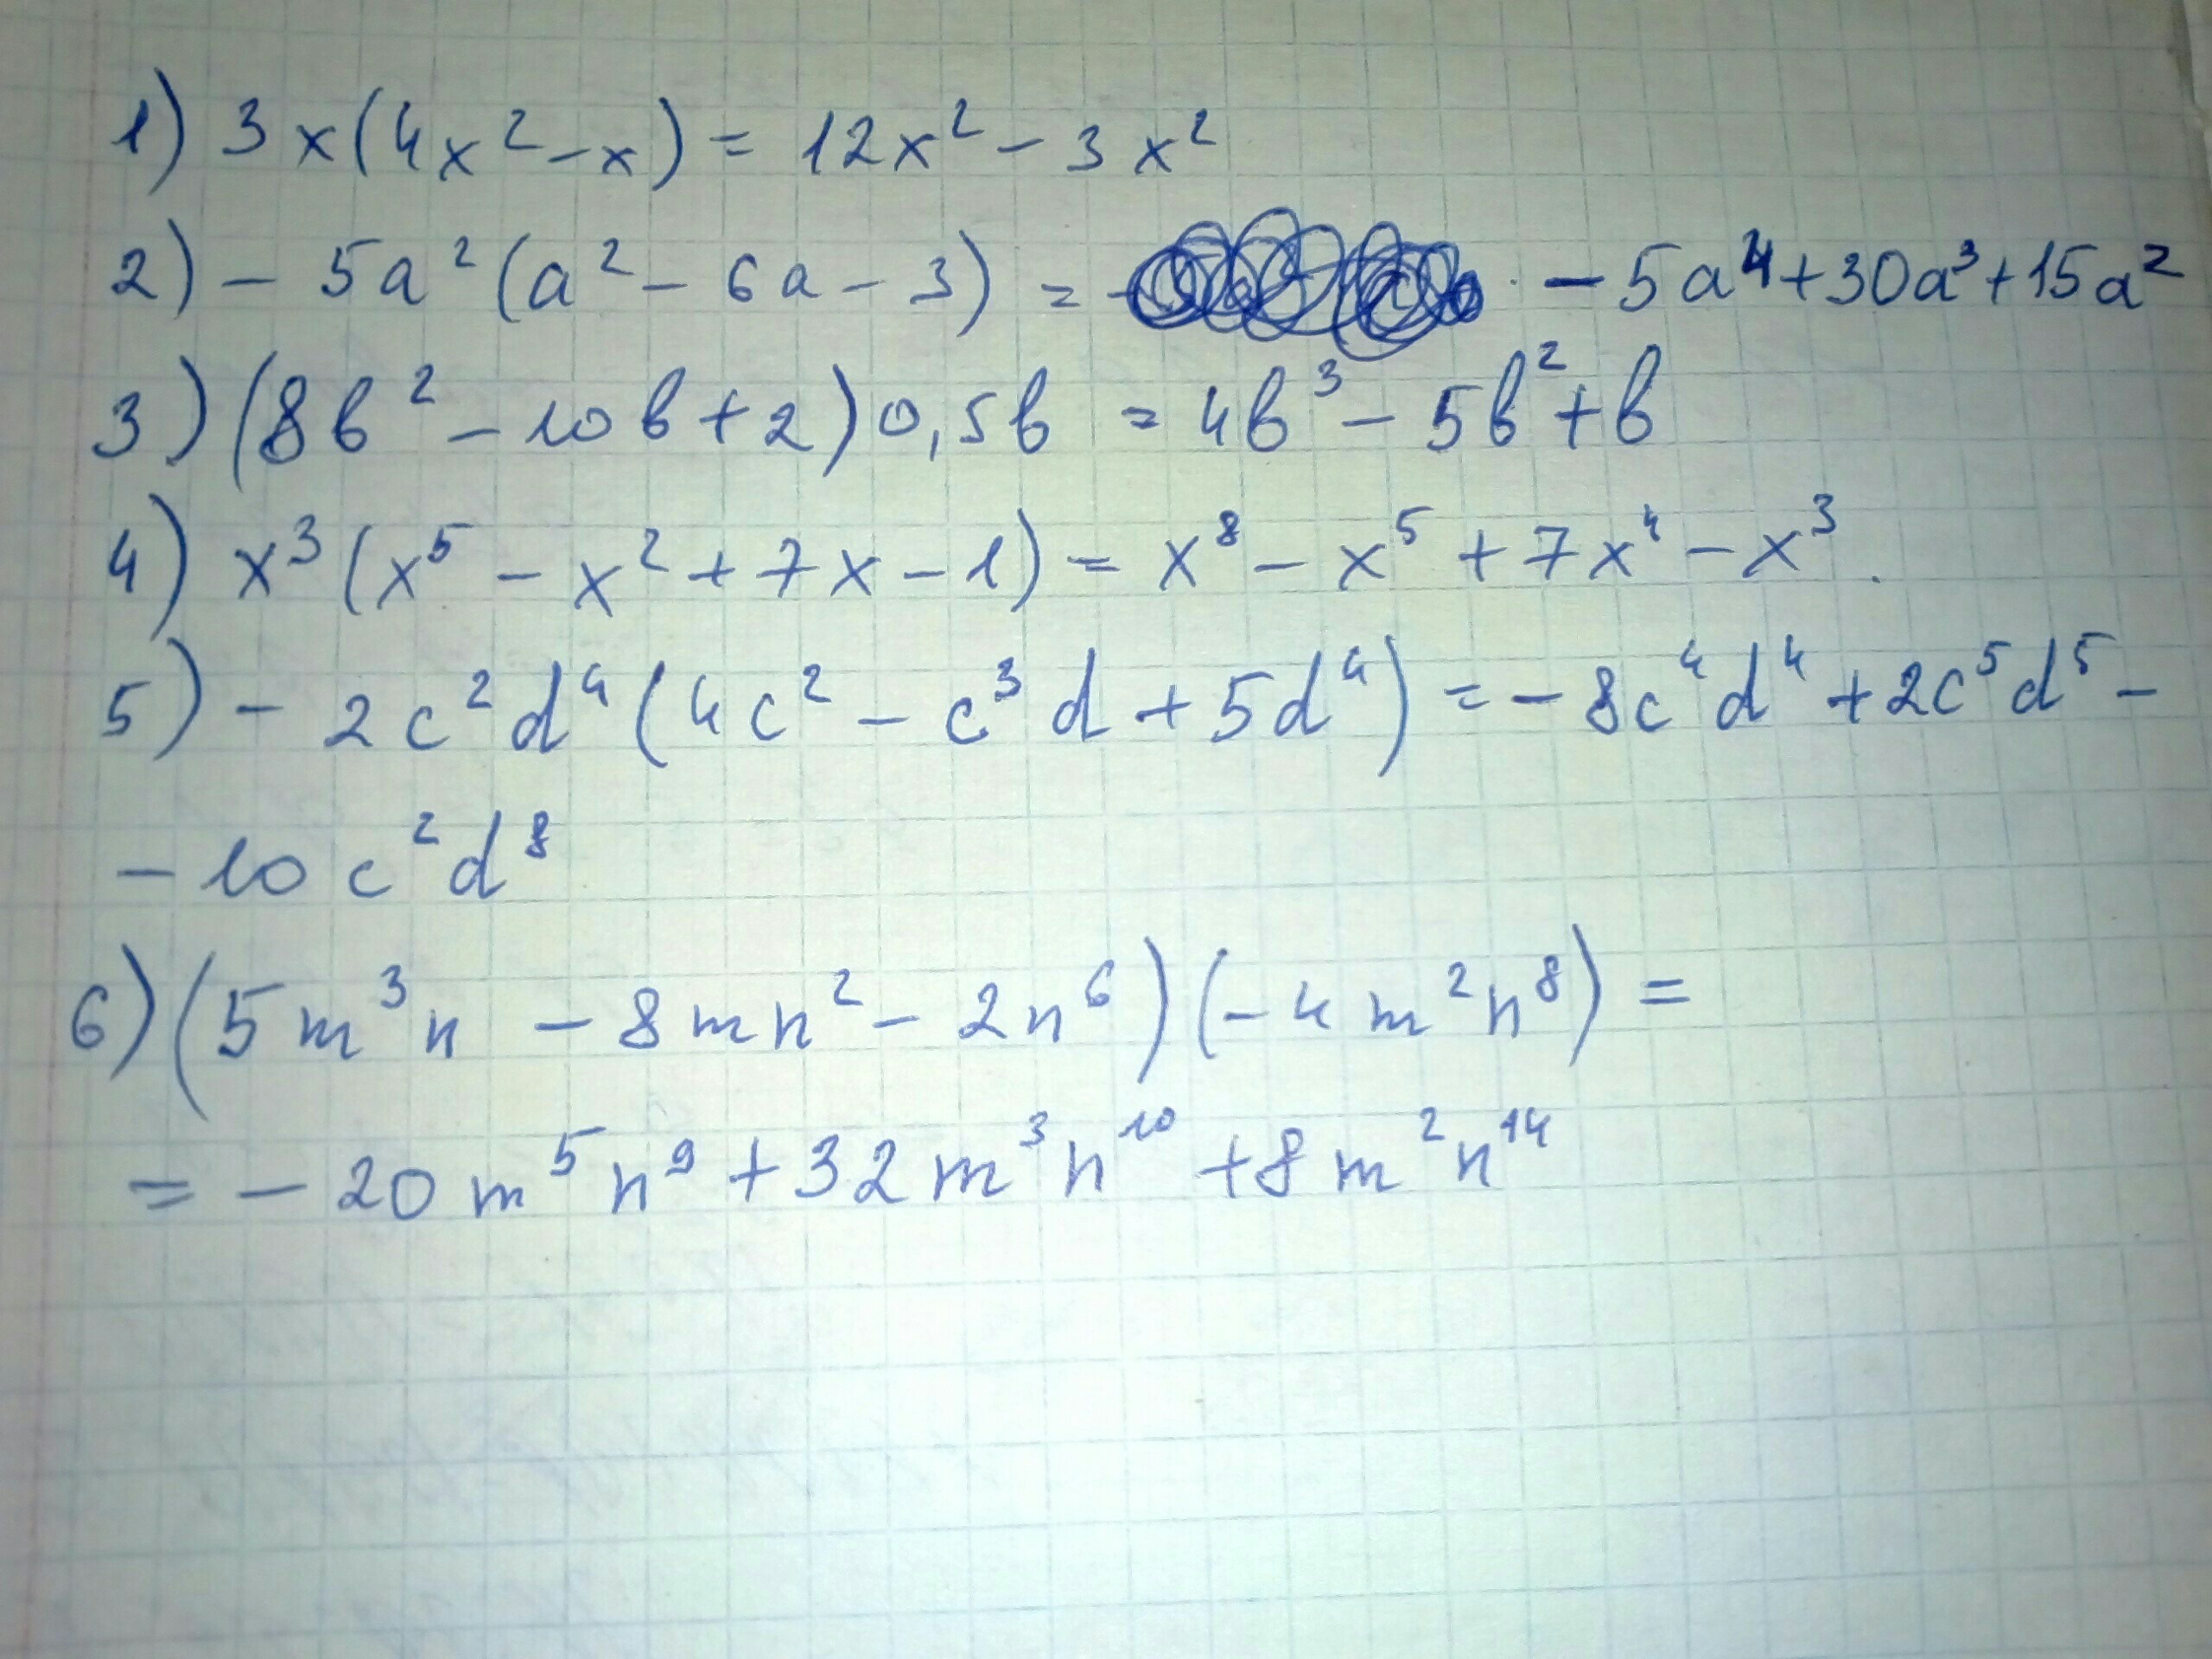 1) 3x(4x² - x) = 12x² - 3x²
2) - 5a²(a² - 6a - 3) = - 5a⁴ + 30a³ + 15a²
3) (8b² - 10b + 2) 0,5b = 4b³ - 5b² + b
4) x³(x⁵ - x² + 7x - 1) = x⁸ - x⁵ + 7x⁴ - x³.
5) - 2c²d⁴(4c² - c³d + 5d⁴) = - 8c⁴d⁴ + 2c⁵d⁵ -
- 10c²d⁸
6) (5m³n - 8mn² - 2n⁶)(- 4m²n⁸) =
= - 20m⁵n⁹ + 32m³n¹⁰ + 8m²n¹⁴